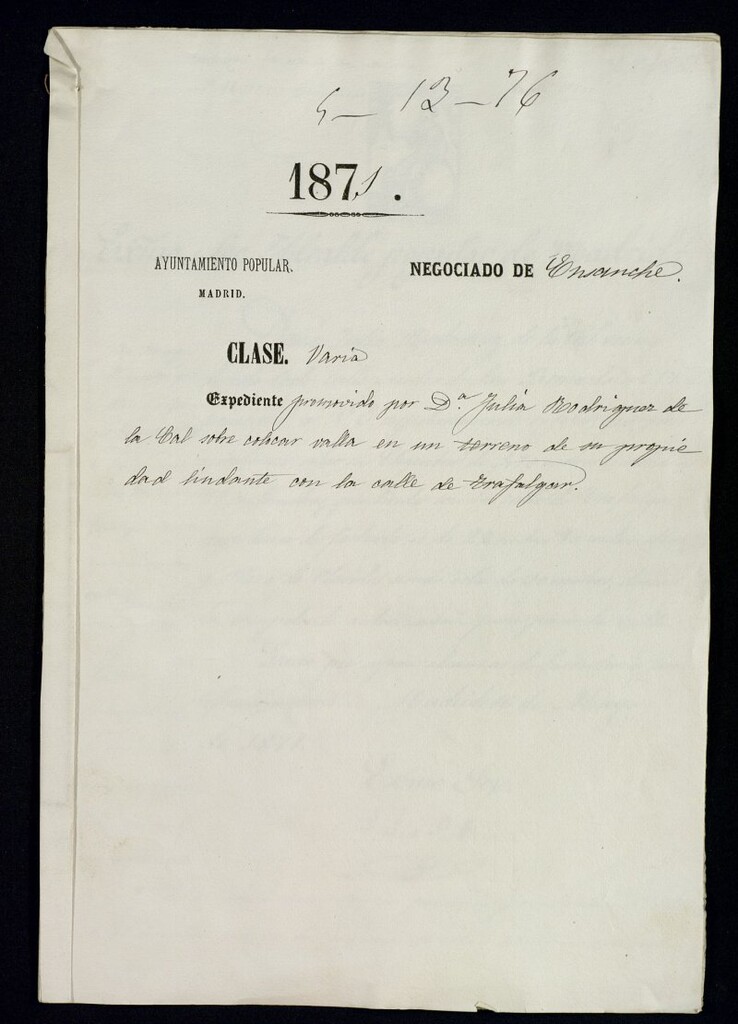 5-13-76
1871.
AYUNTAMIENTO POPULAR.
MADRID.
NEGOCIADO DE Ensanche.
CLASE. Varia
Expediente promovido por D.ª Julia Rodriguez de
la Cal sobre colocar valla en un terreno de su propie
dad lindante con la calle de Trafalgar.